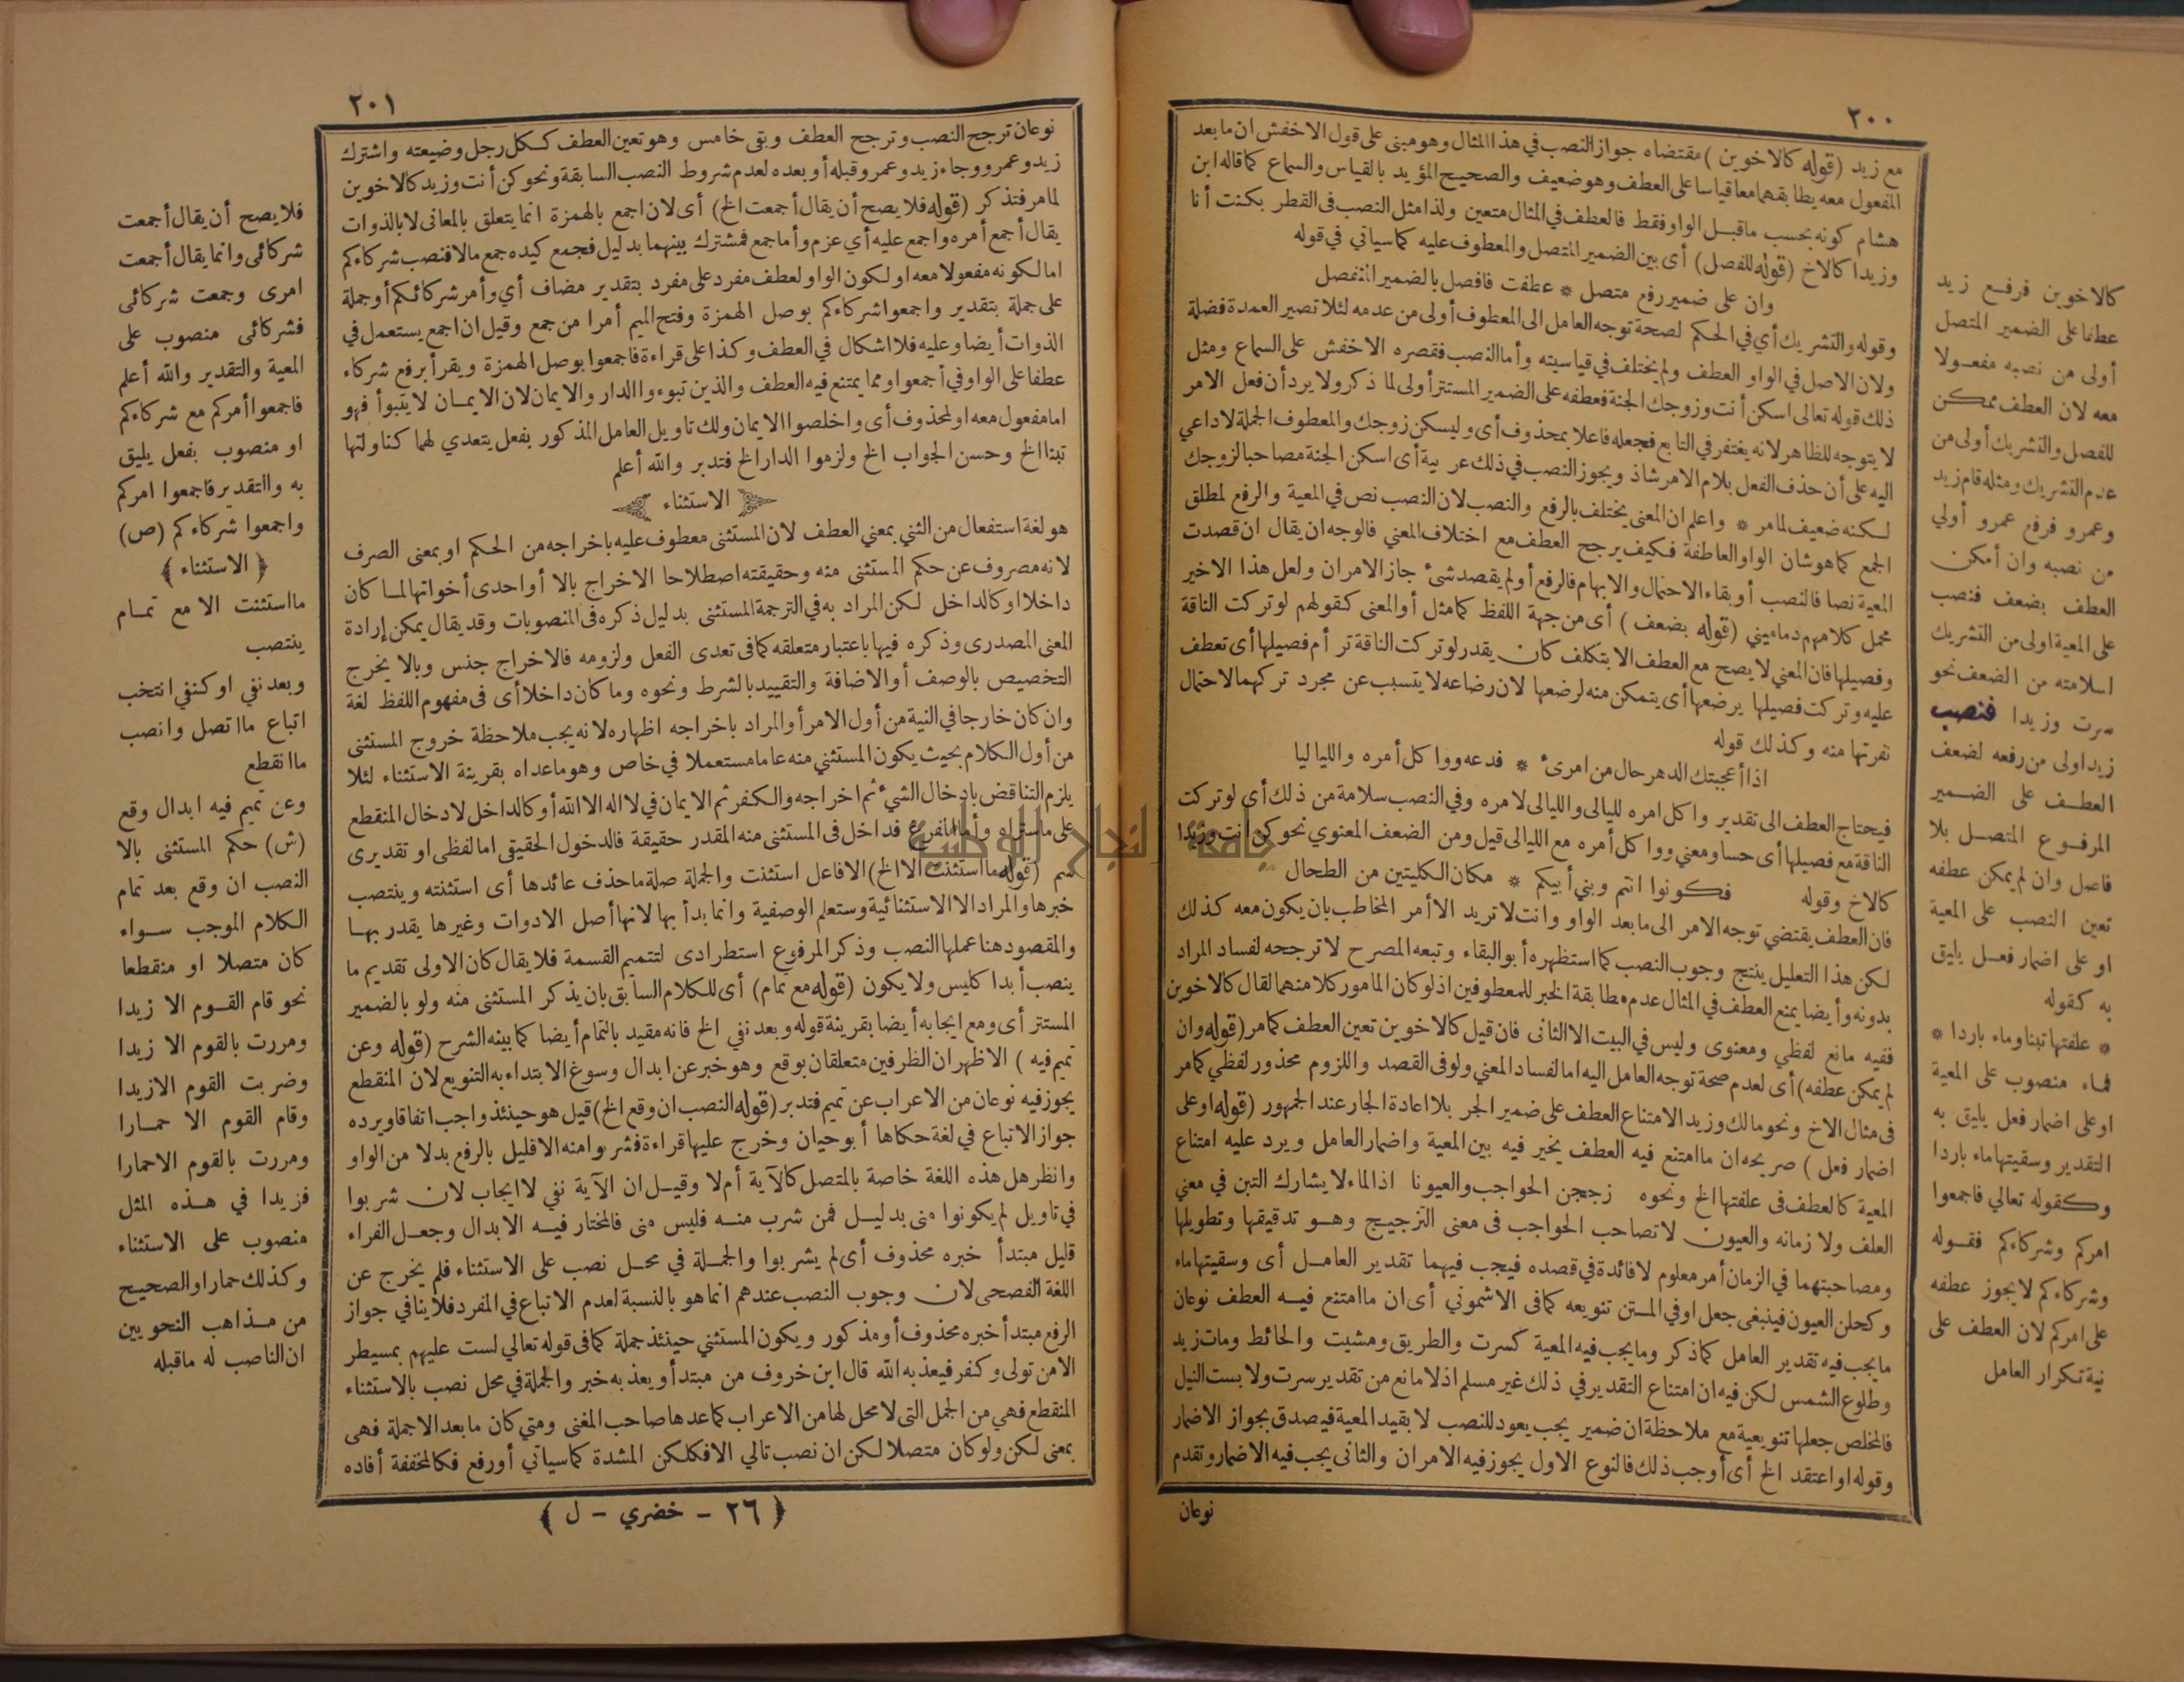 ٢٠٠
مع زيد (قوله كالاخوين) مقتضاه جواز النصب في هذا المثال وهو مبنى على قول الاخفش ان ما بعد
المفعول معه يطابقهما معا قياسا على العطف وهو ضعيف والصحيح المؤيد بالقياس والسماع كما قاله ابن
هشام كونه بحسب ما قبل الواو فقط فالعطف في المثال متعين ولذا مثل النصب في القطر بكنت أنا
وزيدا كالاخ (قوله للفصل) أى بين الضمير المتصل والمعطوف عليه كما سيأتي في قوله
وان على ضمير رفع متصل * عطفت فافصل بالضمير المنفصل
وقوله والتشريك أي في الحكم لصحة توجه العامل الى المعطوف أولى من عدمه لئلا تصير العمدة فضلة
ولان الاصل في الواو العطف ولم يختلف في قياسيته وأما النصب فقصره الاخفش على السماع ومثل
ذلك قوله تعالى اسكن أنت وزوجك الجنة فعطفه على الضمير المستتر أولى لما ذكر ولا يرد أن فعل الامر
لا يتوجه للظاهر لانه يغتفر في التابع فجعله فاعلا بمحذوف أى وليسكن زوجك والمعطوف الجملة لا داعي
اليه على أن حذف الفعل بلام الامر شاذ ويجوز النصب في ذلك عربية أى اسكن الجنة مصاحبا لزوجك
لكنه ضعيف لما مر * واعلم ان المعنى يختلف بالرفع والنصب لان النصب نص في المعية والرفع لمطلق
الجمع كما هو شان الواو العاطفة فكيف يرجح العطف مع اختلاف المعني فالوجه ان يقال ان قصدت
المعية نصا فالنصب أو بقاء الاحتمال والابهام فالرفع أو لم يقصد شئ جاز الامران ولعل هذا الاخير
محمل كلامهم دماميني (قوله بضعف) أى من جهة اللفظ كما مثل أو المعنى كقولهم لو تركت الناقة
وفصيلها فان المعني لا يصح مع العطف الا بتكلف كان يقدر لو تركت الناقة ترأم فصيلها أى تعطف
عليه وتركت فصيلها يرضعها أى يتمكن منه لرضعها لان رضاعه لا يتسبب عن مجرد تركهما لاحتمال
نفرتها منه وكذلك قوله
اذا أعجبتك الدهر حال من امرئ * فدعه وواكل أمره والليا ليا
فيحتاج العطف الى تقدير واكل امره لليالى والليالى لامره وفي النصب سلامة من ذلك أي لو تركت
الناقة مع فصيلها أى حسا ومعني وواكل أمره مع الليالى قيل ومن الضعف المعنوي نحو كن انت وزيدا
كالاخ وقوله فكونوا انتم وبني أبيكم * مكان الكليتين من الطحال
فان العطف يقتضي توجه الامر الى ما بعد الواو وانت لا تريد الا أمر المخاطب بان يكون معه كذلك
لكن هذا التعليل ينتج وجوب النصب كما استظهره أبو البقاء وتبعه المصرح لا ترجحه لفساد المراد
بدونه وأيضا يمنع العطف في المثال عدم مطابقة الخبر للمعطوفين اذ لو كان المامور كلا منهما لقال كالاخوين
ففيه مانع لفظي ومعنوى وليس في البيت الا الثانى فان قيل كالاخوين تعين العطف كما مر (قوله وان
لم يمكن عطفه) أى لعدم صحة توجه العامل اليه اما لفساد المعني ولو في القصد واللزوم محذور لفظي كما مر
فى مثال الاخ ونحو مالك وزيدا لامتناع العطف على ضمير الجر بلا اعادة الجار عند الجمهور (قوله او على
اضمار فعل) صريحه ان ما امتنع فيه العطف يخير فيه بين المعية واضمار العامل ويرد عليه امتناع
المعية كالعطف فى علفتها الخ ونحوه زججن الحواجب والعيونا اذ الماء لا يشارك التبن في معني
العلف ولا زمانه والعيون لا تصاحب الحواجب فى معنى التزجيج وهو تدقيقها وتطويلها
ومصاحبتهما في الزمان أمر معلوم لا فائدة في قصده فيجب فيهما تقدير العامل أى وسقيتها ماء
وكحلن العيون فينبغى جعل او في المتن تنويعه كمافى الاشموني أى ان ما امتنع فيه العطف نوعان
ما يجب فيه تقدير العامل كما ذكر وما يجب فيه المعية كسرت والطريق ومشيت والحائط ومات زيد
وطلوع الشمس لكن فيه ان امتناع التقدير في ذلك غير مسلم اذ لا مانع من تقدير سرت ولا بست النيل
فالمخلص جعلها تنويعية مع ملاحظة ان ضمير يجب يعود للنصب لا بقيد المعية فيصدق بجواز الاضمار
وقوله او اعتقد الخ أى أوجب ذلك فالنوع الاول يجوز فيه الامران والثانى يجب فيه الاضمار وتقدم
نوعان
كالاخوين فرفع زيد
عطفا على الضمير المتصل
أولى من نصبه مفعولا
معه لان العطف ممكن
للفصل والتشريك أولى من
عدم التشريك ومثله قام زيد
وعمرو فرفع عمرو أولي
من نصبه وان أمكن
العطف بضعف فنصب
على المعية اولى من التشريك
لسلامته من الضعف نحو
سرت وزيدا فنصب
زيدا اولى من رفعه لضعف
العطف على الضمير
المرفوع المتصل بلا
فاصل وان لم يمكن عطفه
تعين النصب على المعية
او على اضمار فعل يليق
به كقوله
* علفتها تبنا وماء باردا *
فماء منصوب على المعية
او على اضمار فعل يليق به
التقدير وسقيتها ماء باردا
وكقوله تعالي فاجمعوا
امركم وشركاءكم فقوله
وشركاءكم لا يجوز عطفه
على امركم لان العطف على
نية تكرار العامل
٢٠١
نوعان ترجح النصب وترجح العطف وبقى خامس وهو تعين العطف ككل رجل وضيعته واشترك
زيد وعمرو وجاء زيد وعمرو قبله أو بعده لعدم شروط النصب السابقة ونحو كن أنت وزيد كالاخوين
لما مر فتذكر (قوله فلا يصح أن يقال أجمعت الخ) أى لان اجمع بالهمزة انما يتعلق بالمعانى لا بالذوات
يقال أجمع أمره واجمع عليه أي عزم وأما جمع فمشترك بينهما بدليل فجمع كيده جمع مالا فنصب شركاءكم
اما لكونه مفعولا معه او لكون الواو لعطف مفرد على مفرد بتقدير مضاف أي وأمر شركائكم أو جملة
على جملة بتقدير واجمعوا شركاءكم بوصل الهمزة وفتح الميم أمرا من جمع وقيل ان اجمع يستعمل في
الذوات أيضا وعليه فلا اشكال في العطف وكذا على قراءة فاجمعوا بوصل الهمزة ويقرأ برفع شركاء
عطفا على الواو في أجمعوا ومما يمتنع فيه العطف والذين تبوءوا الدار والايمان لان الايمان لا يتبوأ فهو
اما مفعول معه او لمحذوف أى واخلصوا الايمان ولك تاويل العامل المذكور بفعل يتعدي لهما كناولتها
تبنا الخ وحسن الجواب الخ ولزموا الدار الخ فتدبر والله أعلم
الاستثناء
هو لغة استفعال من الثني بمعني العطف لان المستثنى معطوف عليه باخراجه من الحكم او بمعنى الصرف
لانه مصروف عن حكم المستثنى منه وحقيقته اصطلاحا الاخراج بالا أو احدى أخواتها لما كان
داخلا او كالداخل لكن المراد به في الترجمة المستثنى بدليل ذكره فى المنصوبات وقد يقال يمكن إرادة
المعنى المصدرى وذكره فيها باعتبار متعلقه كما فى تعدى الفعل ولزومه فالاخراج جنس وبالا يخرج
التخصيص بالوصف أو الاضافة والتقييد بالشرط ونحوه وما كان داخلا أى فى مفهوم اللفظ لغة
وان كان خارجا في النية من أول الامر أو المراد باخراجه اظهاره لانه يجب ملاحظة خروج المستثنى
من أول الكلام بحيث يكون المستثني منه عاما مستعملا في خاص وهو ما عداه بقرينة الاستثناء لئلا
يلزم التناقض بادخال الشيء ثم اخراجه والكفر ثم الايمان في لا اله الا الله أو كالداخل لادخال المنقطع
على ما ستراه وأما المفرغ فداخل فى المستثنى منه المقدر حقيقة فالدخول الحقيقى اما لفظى او تقديرى
سم (قوله ما استثنت الا الخ) الا فاعل استثنت والجملة صلة ما حذف عائدها أى استثنته وينتصب
خبرها والمراد الا الاستثنائية وستعلم الوصفية وانما بدأ بها لانها أصل الادوات وغيرها يقدر بها
والمقصود هنا عملها النصب وذكر المرفوع استطرادى لتتميم القسمة فلا يقال كان الاولى تقديم ما
ينصب أبدا كليس ولا يكون (قوله مع تمام) أى للكلام السابق بان يذكر المستثنى منه ولو بالضمير
المستتر أى ومع ايجابه أيضا بقرينة قوله وبعد نفي الخ فانه مقيد بالتمام أيضا كما بينه الشرح (قوله وعن
تميم فيه) الاظهر ان الظرفين متعلقان بوقع وهو خبر عن ابدال وسوغ الابتداء به التنويع لان المنقطع
يجوز فيه نوعان من الاعراب عن تميم فتدبر (قوله النصب ان وقع الخ) قيل هو حينئذ واجب اتفاقا ويرده
جواز الاتباع في لغة حكاها أبو حيان وخرج عليها قراءة فشربوا منه الا قليل بالرفع بدلا من الواو
وانظر هل هذه اللغة خاصة بالمتصل كالآية أم لا وقيل ان الآية نفي لا ايجاب لان شربوا
في تاويل لم يكونوا منى بدليل فمن شرب منه فليس منى فالمختار فيه الابدال وجعل الفراء
قليل مبتدأ خبره محذوف أى لم يشربوا والجملة في محل نصب على الاستثناء فلم يخرج عن
اللغة الفصحى لان وجوب النصب عندهم انما هو بالنسبة لعدم الاتباع في المفرد فلا ينافي جواز
الرفع مبتدأ خبره محذوف أو مذكور ويكون المستثني حينئذ جملة كما فى قوله تعالي لست عليهم بمسيطر
الا من تولى وكفر فيعذبه الله قال ابن خروف من مبتدأ ويعذبه خبر والجملة في محل نصب بالاستثناء
المنقطع فهي من الجمل التى لا محل لها من الاعراب كما عدها صاحب المغنى ومتي كان ما بعد الا جملة فهى
بمعنى لكن ولو كان متصلا لكن ان نصب تالي الا فكلكن المشدة كما سيأتي أو رفع فكالمخففة أفاده
(٢٦ - خضري - ل)
فلا يصح أن يقال أجمعت
شركائى وانما يقال أجمعت
امرى وجمعت شركائى
فشركائى منصوب على
المعية والتقدير والله أعلم
فاجمعوا أمركم مع شركاءكم
او منصوب بفعل يليق
به والتقدير فاجمعوا امركم
واجمعوا شركاءكم (ص)
(الاستثناء)
ما استثنت الا مع تمام
ينتصب
وبعد نفي او كنفي انتخب
اتباع ما اتصل وانصب
ما انقطع
وعن تميم فيه ابدال وقع
(ش) حكم المستثنى بالا
النصب ان وقع بعد تمام
الكلام الموجب سواء
كان متصلا او منقطعا
نحو قام القوم الا زيدا
ومررت بالقوم الا زيدا
وضربت القوم الا زيدا
وقام القوم الا حمارا
ومررت بالقوم الا حمارا
فزيدا في هذه المثل
منصوب على الاستثناء
وكذلك حمارا والصحيح
من مذاهب النحويين
ان الناصب له ما قبله
جامعة النجاح الوطنية